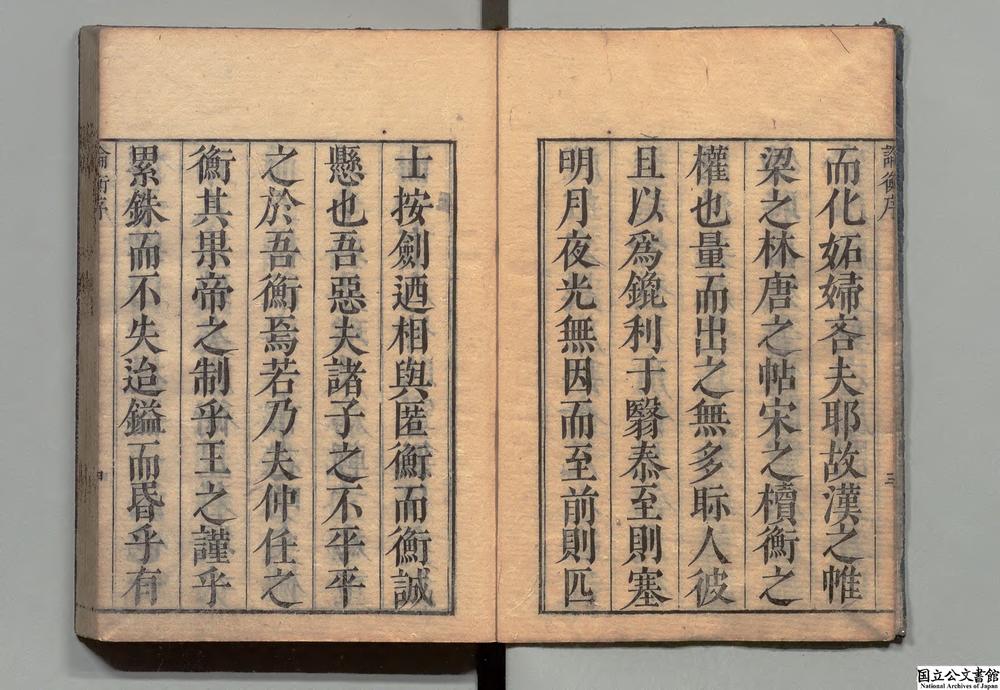 論衡序
三
而化妬婦吝夫耶故漢之帷
梁之林唐之帖宋之櫝衡之
權也量而出之無多眎人彼
且以爲錕利于翳𣳾至則塞
明月夜光無因而至前則匹
士按劍迺相與匿衡而衡誠
懸也吾惡夫諸子之不平平
之於吾衡焉若乃夫仲任之
衡其果帝之制乎王之謹乎
累銖而不失迨鎰而昏乎有
論衡序
四
国立公文書館
National Archives of Japan